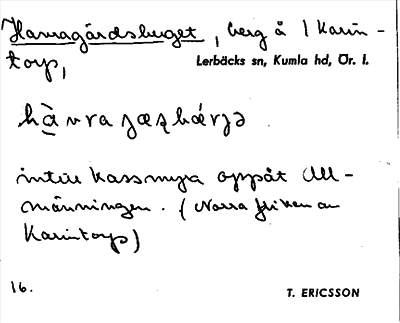 Havragärdsberget, berg å 1 Karin-
torp,
Lerbäcks sn, Kumla hd, Ör. l.
hàvrajæʐbǽrjə.
intill Kassmyra uppåt All-
männingen. (Norra fliken av
Karintorp)
16.
T. ERICSSON